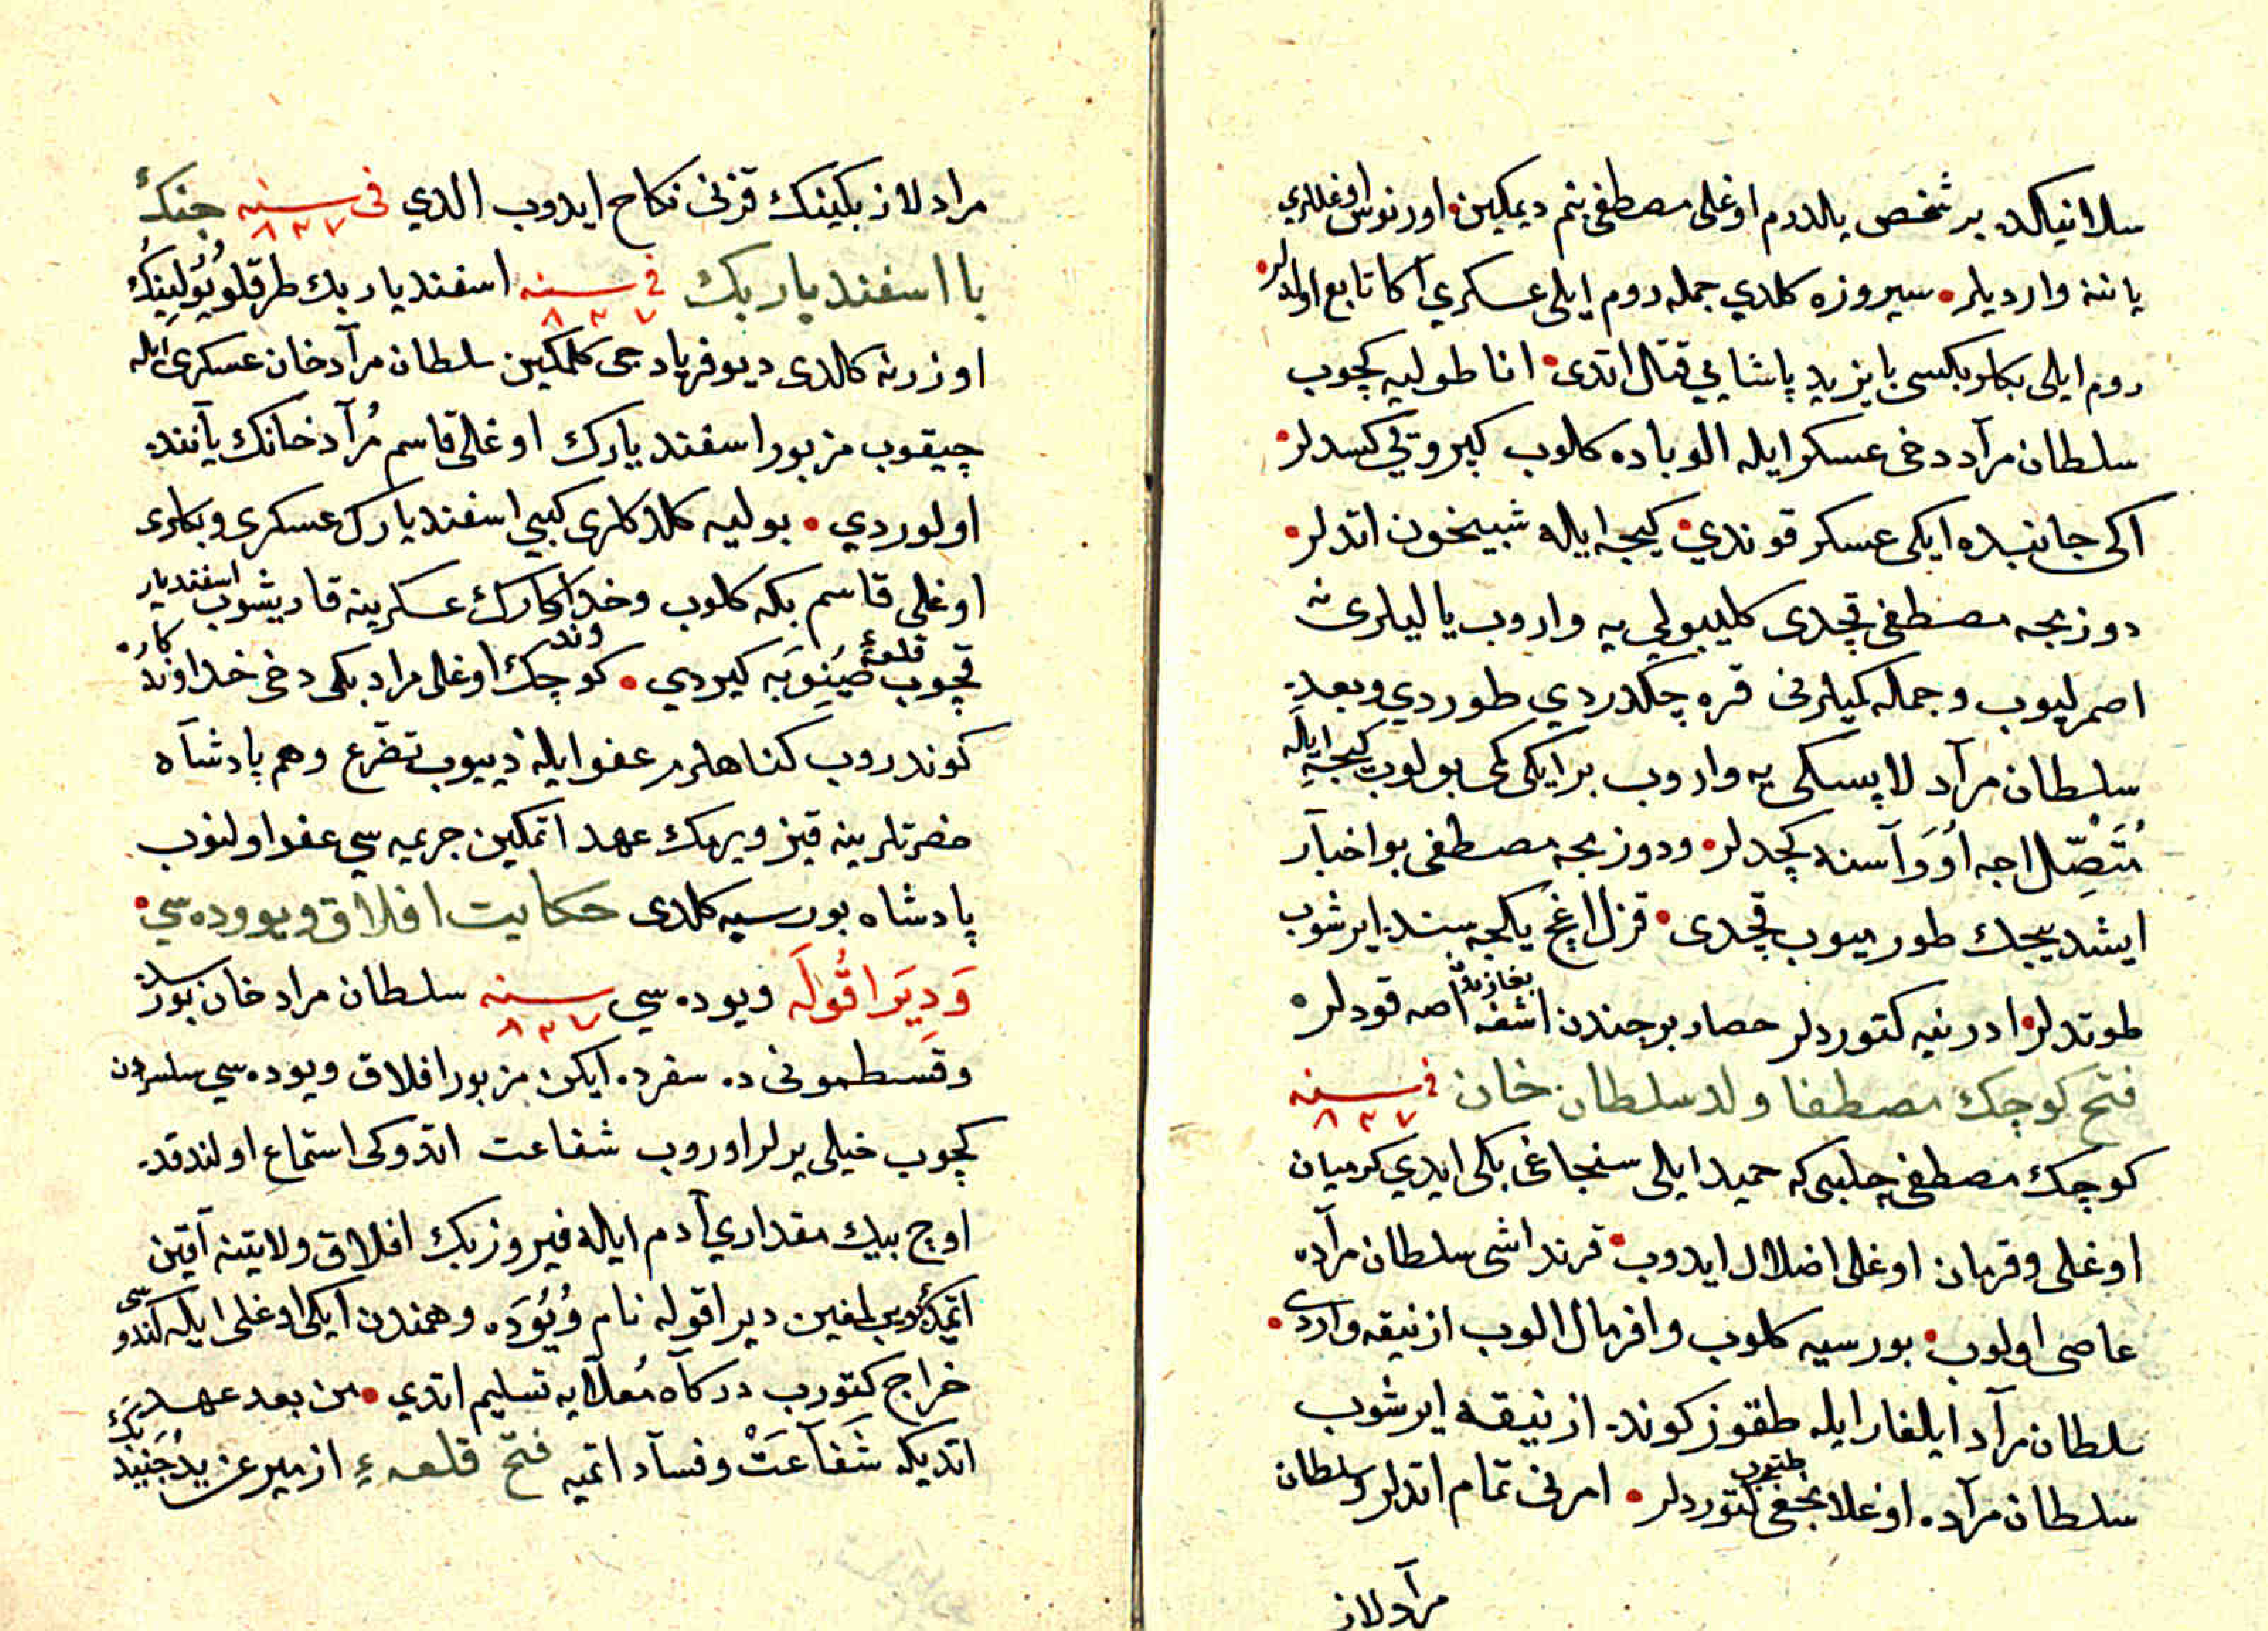 سلانیکده بر شخص یالدرم اوغلی مصطفی بنم دیمکین اورنوس اوغللری
یاننه واردیلر سیروزه کلدي جمله روم ایلی عسکري اکا تابع اولدلر
روم ایلی بکلربکسی بایزید پاشایي قتال اتدی اناطولیه کچوب
سلطان مرآد دخی عسکر ایله الوباده کلوب کپروئي کسدلر
اکی جانبده ایکی عسکر قوندي کیجه ایله شبیخون اتدلر
دوزمجه مصطفی قچدی کلیبولي یه واروب یالیلری نه
اصمرلیوب وجمله کمیلرنی قره چکدردي طوردي وبعده
سلطان مرآد لاپسکی یه واروب بر ایکی کمی بولوب کیجه ایله
متصل اجه اووآسنه کچدلر ودوزمجه مصطفی بو اخبآر
ایشدیجك طورمیوب قچدی قزل اغچ یکیجه سنده ایرشوب
طوتدلر ادرنیه کتوردلر حصار برجندن اشغه بغازندن اصه قودلر
فتح کوچك مصطفا ولد سلطان خان فی سنه ٨٣٧
کوچك مصطفی چلبی که حمید ایلی سنجاغی بکی ایدي کرمیان
اوغلی وقرمان اوغلی اضلال ایدوب قرنداشی سلطان مرآده
عاصی اولوب بورسیه کلوب وافر مال الوب ازنیقه واردی
سلطان مرآد ایلغار ایله طقوز کونده ازنیقه ایرشوب
سلطان مرآده اوغلانجغی طتوب کتوردلر امرنی تمام اتدلر وسلطان
مرآد لاز
مراد لاز بکینك قزنی نکاح ایدوب الدي فی سنه ٨٣٧ جنك
با اسفندیار بك فی سنه ٨٣٧ اسفندیار بك طرقلو بولینك
اوزرنه کالدی دیو فریادجی کلمکین سلطان مرآد خان عسکری ایله
چیقوب مزبور اسفندیارك اوغلی قاسم مرآد خانك یآننده
اولوردي بولیه کلدکلری کبي اسفندیارك عسکری وبکلری
اوغلی قاسم بکه کلوب وخداوندکارك عسکرینه قاریشوب اسفندیار
قچوب قلعهٔ صینوبه کیردي کوچك اوغلی مراد بکی دخی خداوندکاره
کوندروب کناهلرم عفو ایله دییوب تضرع وهم پادشآه
حضرتلرینه قیز ویرمك عهد اتمکین جریمه سي عفو اولنوب
پادشاه بورسیه کلدی حکایت افلاق ویووده سي
ودیر اقوله ویوده سي سنه ٨٣٧ سلطان مراد خان بورسادن
وقسطمونی ده سفرده ایکن مزبور افلاق ویوده سي سلسره دن
کچوب خیلی یرلر اوروب شفاعت اتدوکی استماع اولندقده
اوچ بیك مقداري آدم ایله فیروز بك افلاق ولایتنه آقین
اتمك بویرلغین دیر اقوله نام ویوده وهمندن ایکی اوغلی ایله کندوسی
خراج کتورب درکاه معلایه تسلیم اتدي من بعد عهد
اتدیکه شفآعت وفسآد اتمیه فتح قلعهٔ ازمیر عن ید جنید بك